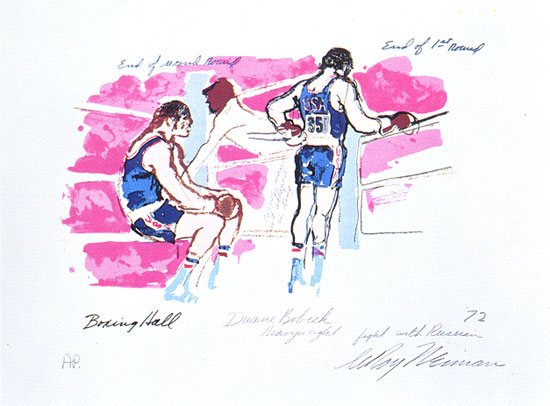 End of 1st Round
End of second Round
USA
351
Boxing Hall
Duane Bobick
Heavyweight
fight with Russian
'72
AP.
LeRoy Neiman